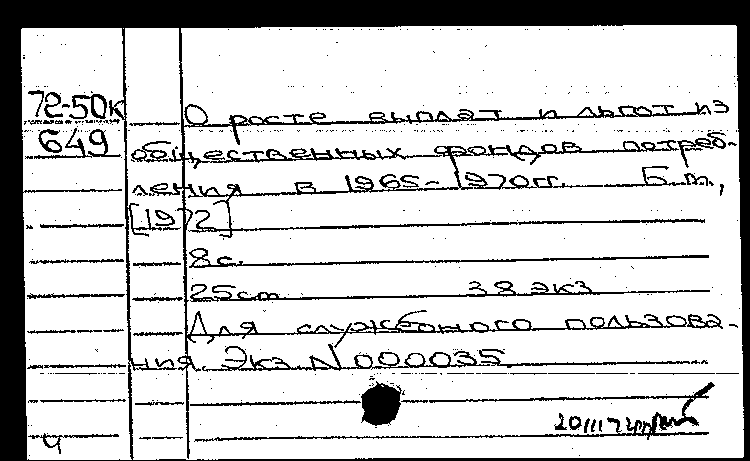 72-50к О росте выплат и льгот из
649 общественных фондов потреб-
ления в 1965-1970гг. Б.м.,
[1972]
8с.
25см 38 экз
Для служебного пользова-
ния. Экз N 000035
20/III 72
ч